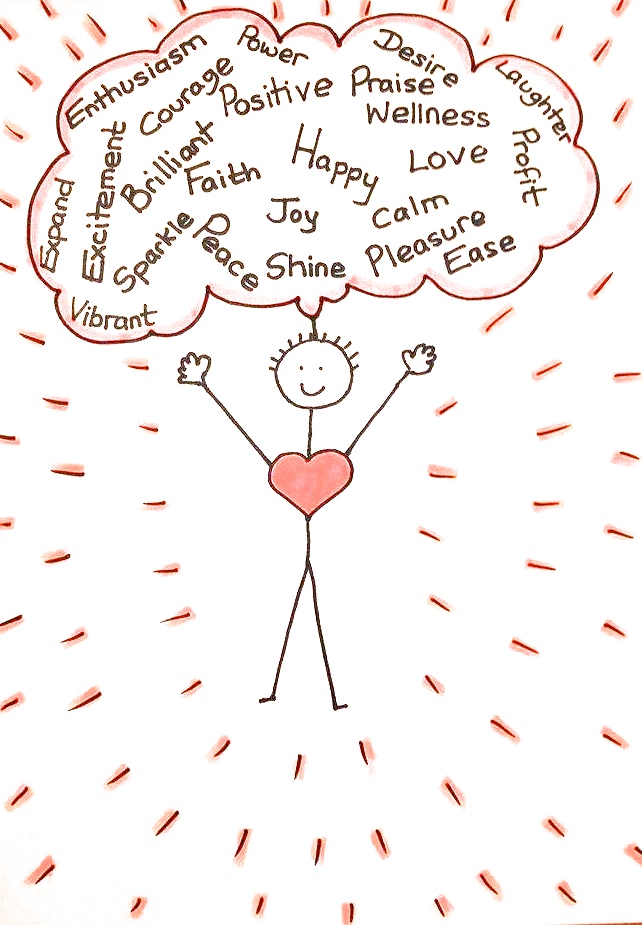 Enthusiasm
Power
Desire
Laughter
Courage
Positive
Praise
Wellness
Excitement
Brilliant
Faith
Happy
Love
Profit
Expand
Sparkle
Peace
Joy
Calm
Shine
Pleasure
Ease
Vibrant